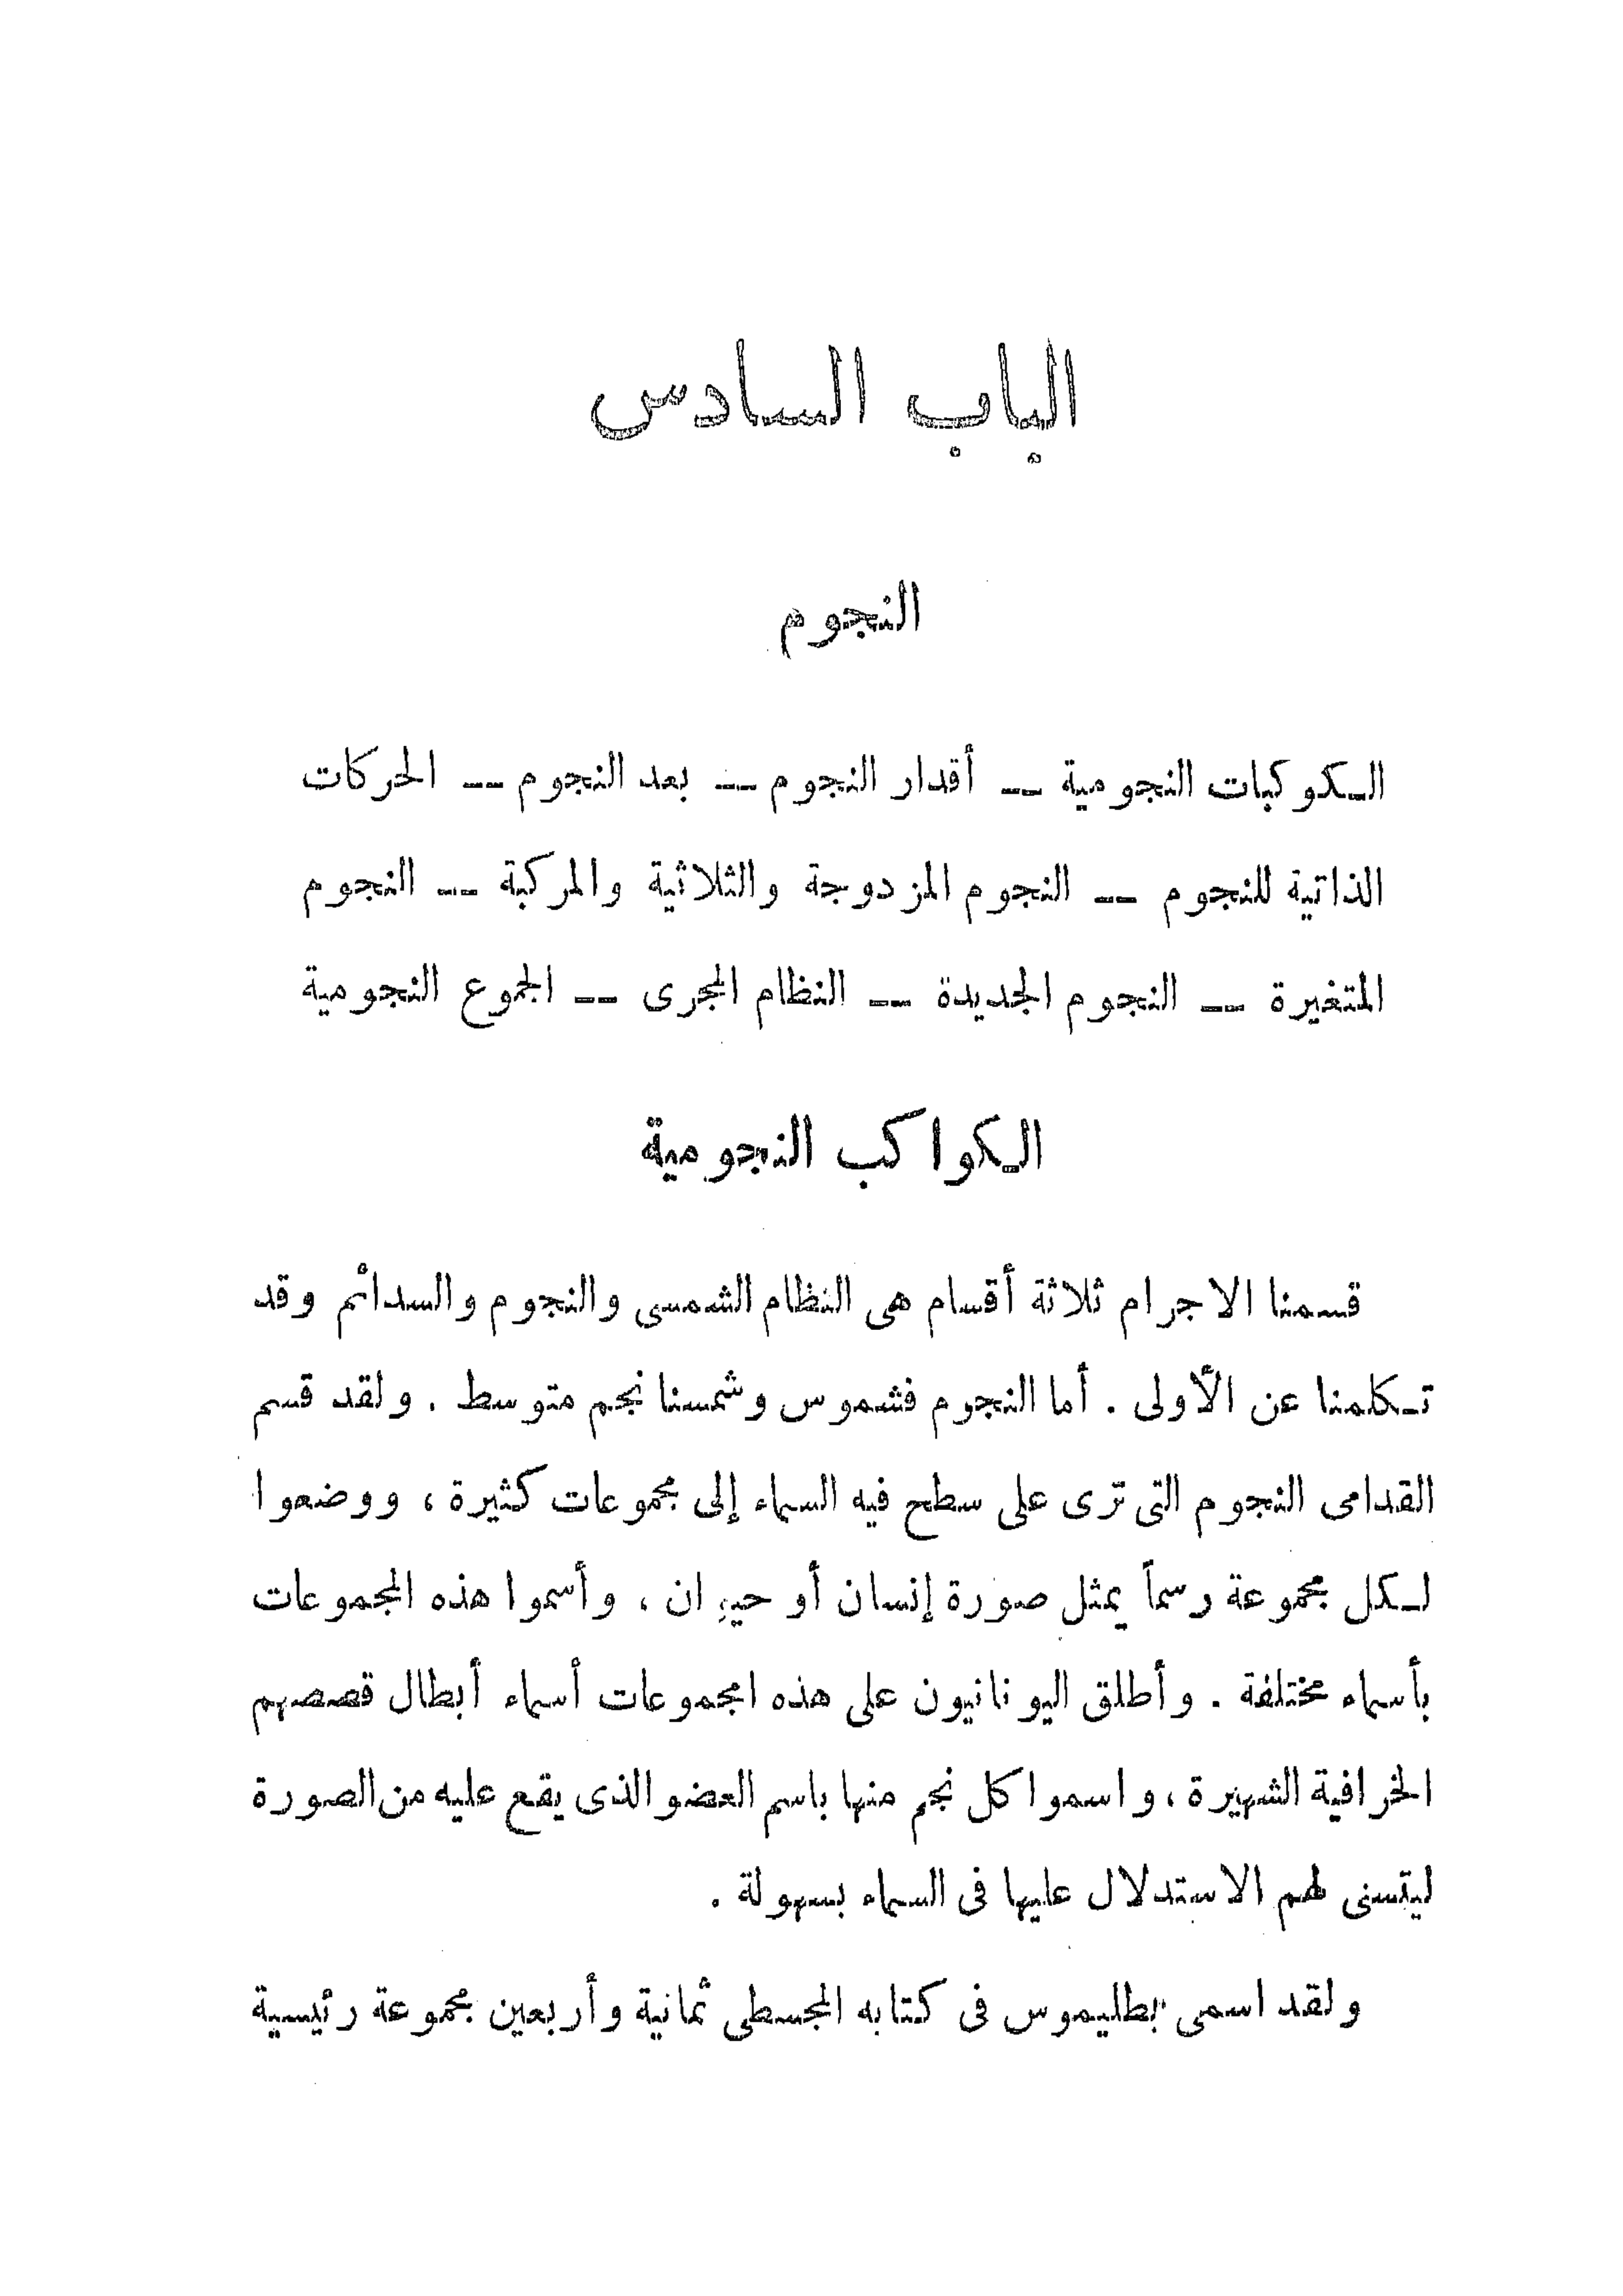 الباب السادس
النجوم
الكوكبات النجومية -- أقدار النجوم -- بعد النجوم -- الحركات
الذاتية للنجوم -- النجوم المزدوجة والثلاثية والمركبة -- النجوم
المتغيرة -- النجوم الجديدة -- النظام المجرى -- الجموع النجومية
الكواكب النجومية
قسمنا الاجرام ثلاثة أقسام هى النظام الشمسى والنجوم والسدائم وقد
تكلمنا عن الأولى . أما النجوم فشموس وشمسنا نجم متوسط . ولقد قسم
القدامى النجوم التى ترى على سطح فيه السماء إلى مجموعات كثيرة ، ووضعوا
لكل مجموعة رسماً يمثل صورة إنسان أو حيوان ، وأسموا هذه المجموعات
بأسماء مختلفة . وأطلق اليونانيون على هذه المجموعات أسماء أبطال قصصهم
الخرافية الشهيرة ، واسموا كل نجم منها باسم العضو الذى يقع عليه من الصورة
ليتسنى لهم الاستدلال عليها فى السماء بسهولة .
ولقد اسمى بطليموس فى كتابه المجسطى ثمانية وأربعين مجموعة رئيسية